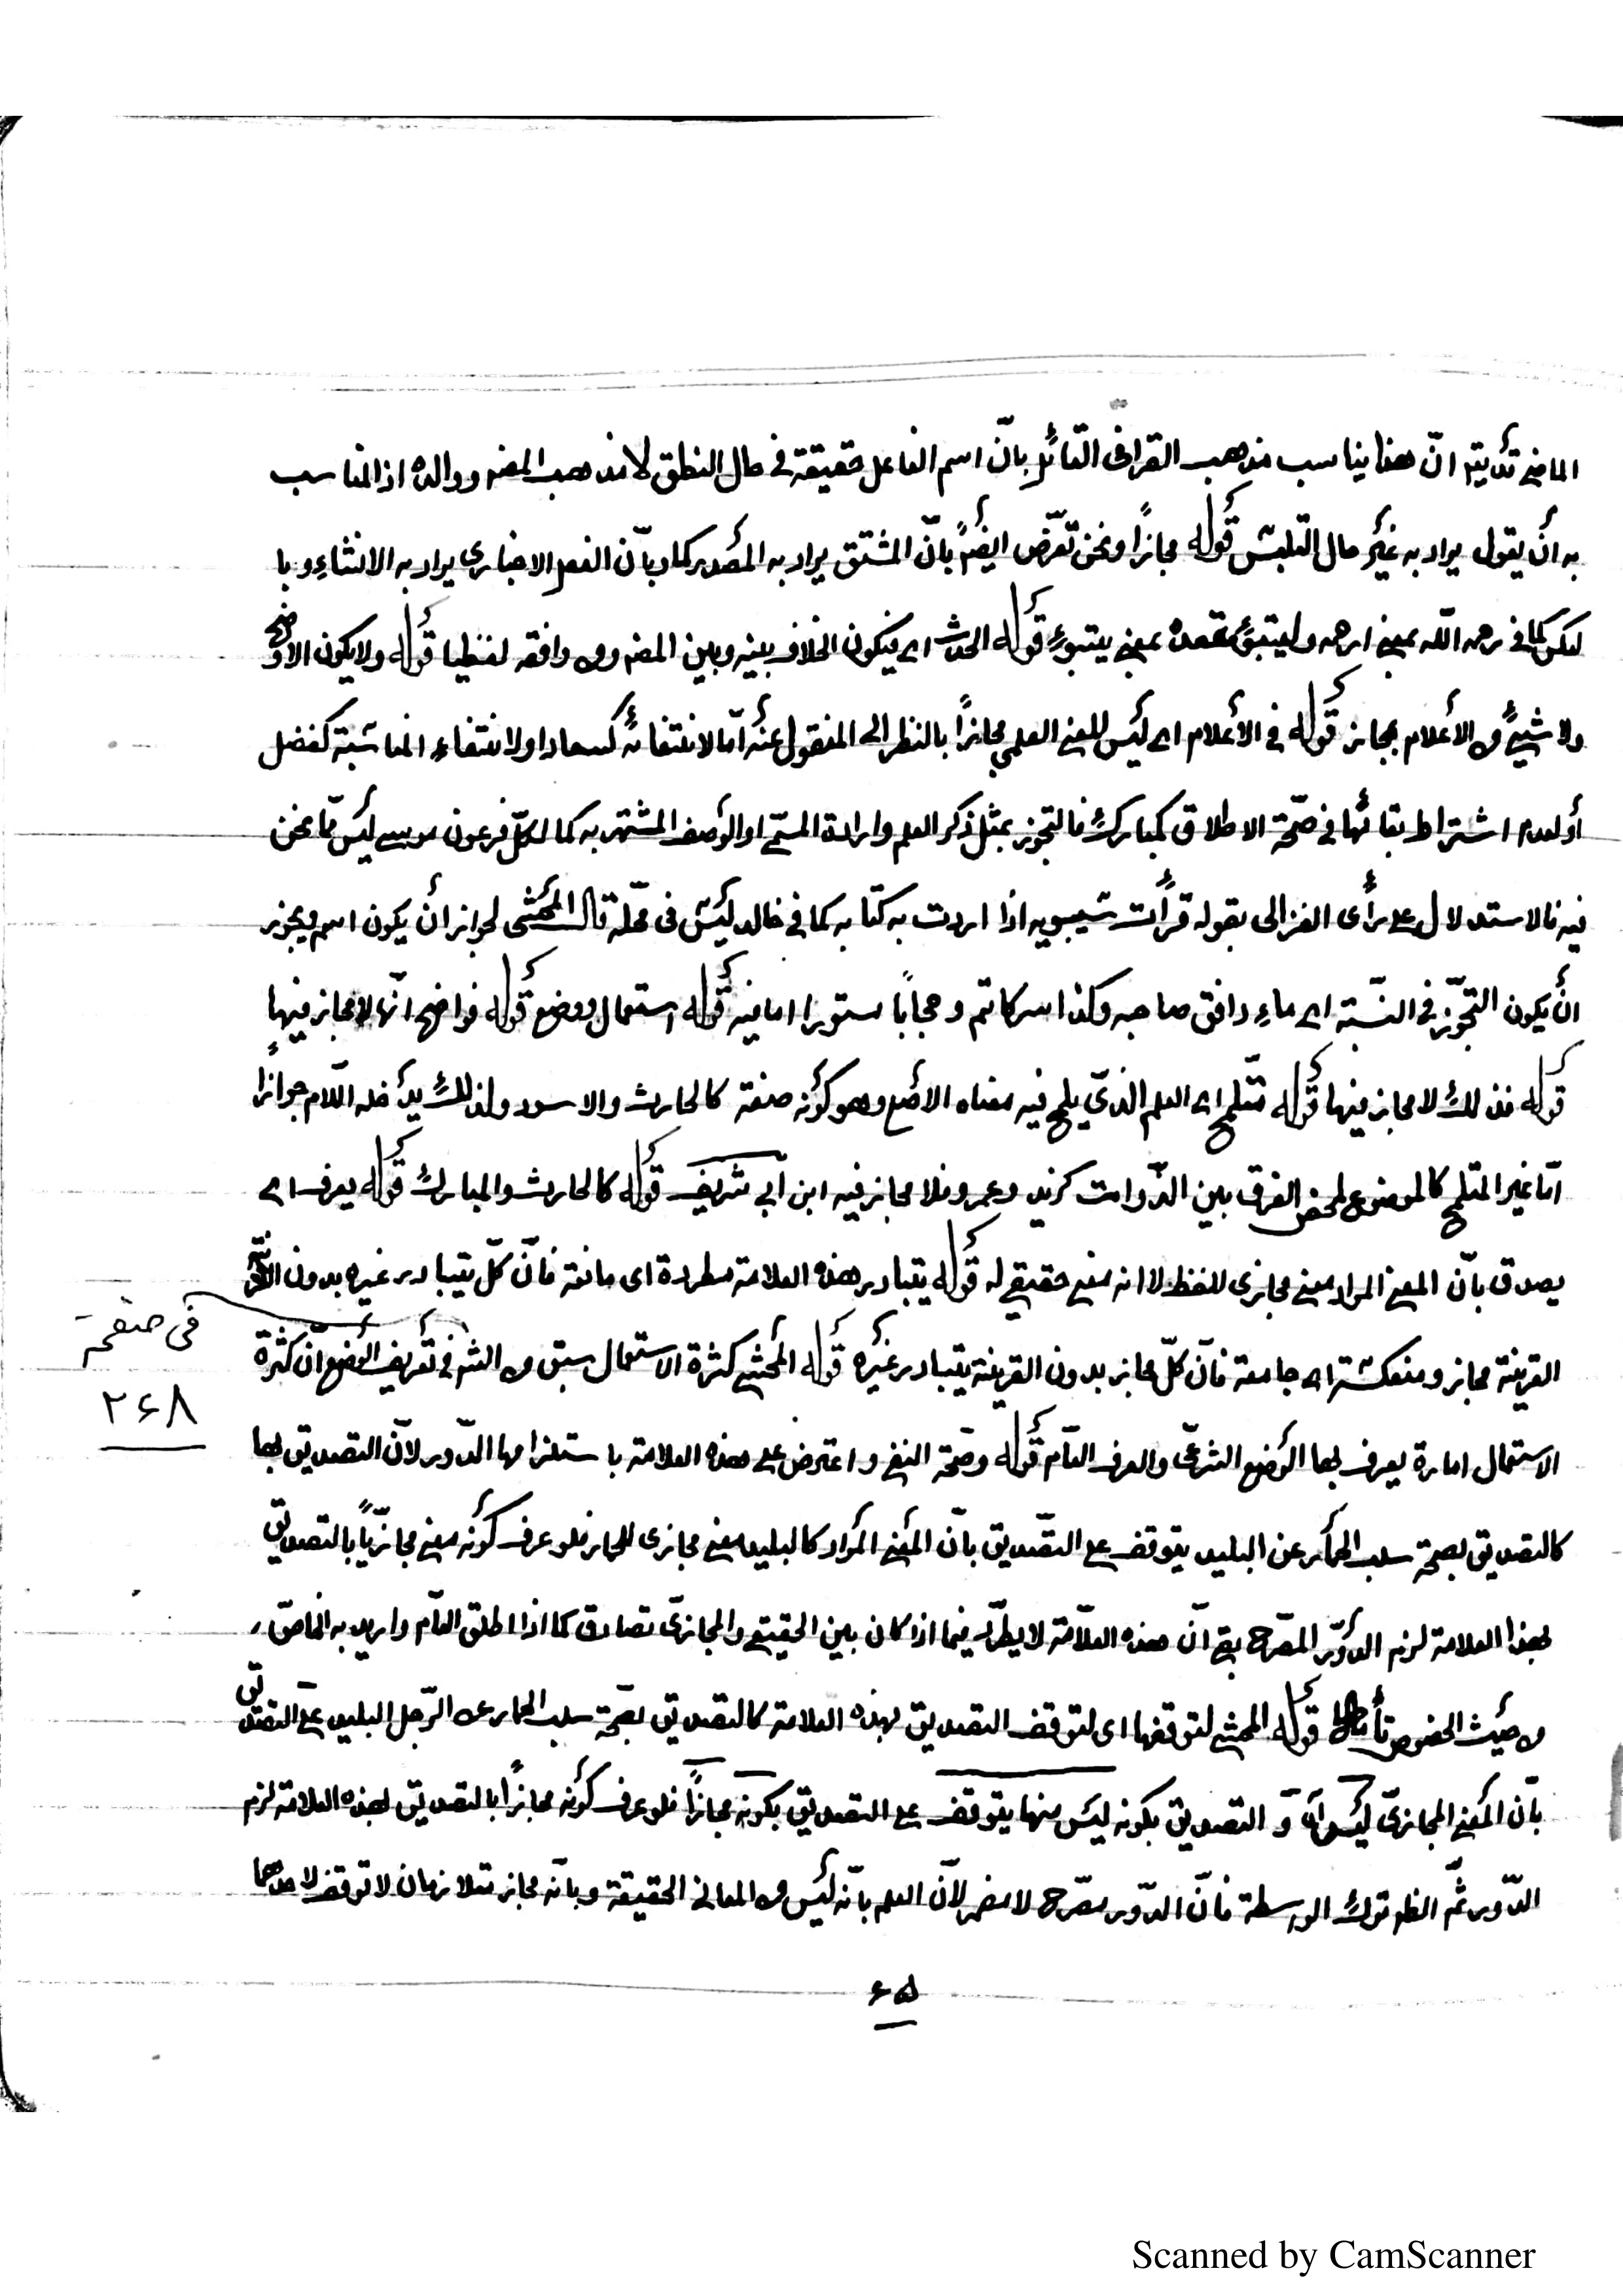 الماضي قد يتم انّ هذا يناسب مذهب القرافى القائل بانّ اسم الفاعل حقيقة في حال النطق لا مذهب المصنف ووالده اذ المناسب
به أن يقول يراد به غير حال التلبس قوله مجازاً ونحن نعرّض ايضاً بانّ المشتق يراد به المصدر كما وبانّ الفعل الاخبارى يراد به الانشاء وبا
لعكس كما في رحمه اللّه بمعنى ارحمه وليتبوّأ مقعده بمعنى يتبوء قوله الحدث اى فيكون الخلاف بينه وبين المصنف ومن وافقه لفظيا قوله ولا يكون الاوضح
ولا شيئ من الأعلام بمجاز قوله في الأعلام اى ليس للمعنى العلمي مجازاً بالنظر الى المنقول عنه أمّا لانتفائه كسعاد او لانتفاء المناسبة كفضل
أو لعدم اشتراط بقائها في صحّة الاطلاق كمبارك فالتجوز بمثل ذكر العلم وارادة المسمّى او الوصف المشتهر به كما لكلّ فرعون موسى ليس ممّا نحن
فيه فالاستدلال على رأى الغزالى بقوله قرأت سيبويه اذا اردت به كتابه كما في خالد ليس فى محلّه قال المحشى لجواز أن يكون اسم ويجوز
انّ يكون التجوّز في النسبة اى ماء دافق صاحبه وكذا سركاتم وحجاباً مستورا اما فيه قوله استعمال ووضع قوله فواضح انّها لا مجاز فيها
قوله فذلك لا مجاز فيها قوله متلمح اى العلم الذي يلمح فيه معناه الأصلي وهو كونه صفة كالحارث والاسود ولذلك يدخله اللام جوازا
امّا غير المتلمح كالموضوع لمحض الفرق بين الذّوات كزيد وعمرو فلا مجاز فيه ابن أبي شريف قوله كالحارث والمبارك قوله يعرف اى
يصدق بانّ المعنى المراد معنى مجازى للفظ لا انه معنى حقيقي له قوله يتبادر هذه العلامة مطردة اى مانعة فانّ كلّ يتبادر غيره بدون
القرينة مجاز ومنعكسة اى جامعة فانّ كلّ مجاز بدون القرينة يتبادر غيره قوله المحشى كثرة الاستعمال سبق من الشر في تعريف الوضع انّ كثرة
الاستعمال امارة يعرف بها الوضع الشرعى والعرف العام قوله وصحّة النفي واعترض على هذه العلامة باستلزامها الدّور لانّ التصديق بها
كالتصديق بصحة سلب الحمار عن البليد يتوقف على التصديق بانّ المعنى المراد كالبليد معنى مجازى للحمار فلو عرف كونه معنى مجازيّاً بالتصديق
بهذا العلامة لزم الدّور المصرّح بقى انّ هذه العلامة لا يطّرد فيما اذا كان بين الحقيقى والمجازىّ تصادق كما اذا اطلق العام واريد به الخاصّ
من حيث الخصوص تأمل قوله المحشى لتوقفها اى لتوقف التصديق بهذه العلامة كالتصديق بصحّة سلب الحمار عن الرّجل البليد على التصديق
بانّ المعنى المجازىّ ليس و التصديق بكونه ليس منها يتوقف على التصديق بكونه مجازاً فلو عرف كونه مجازاً بالتصديق بهذه العلامة لزم
الدّور ثمّ الظ ترك الواسطة فانّ الدّور مصرّح لا مضمر لانّ العلم بانّه ليس من المعانى الحقيقة وبانّه مجاز متلازمان لا توقف لاحدهما
فى صفحة
٢٦٨
٦٥
Scanned by CamScanner